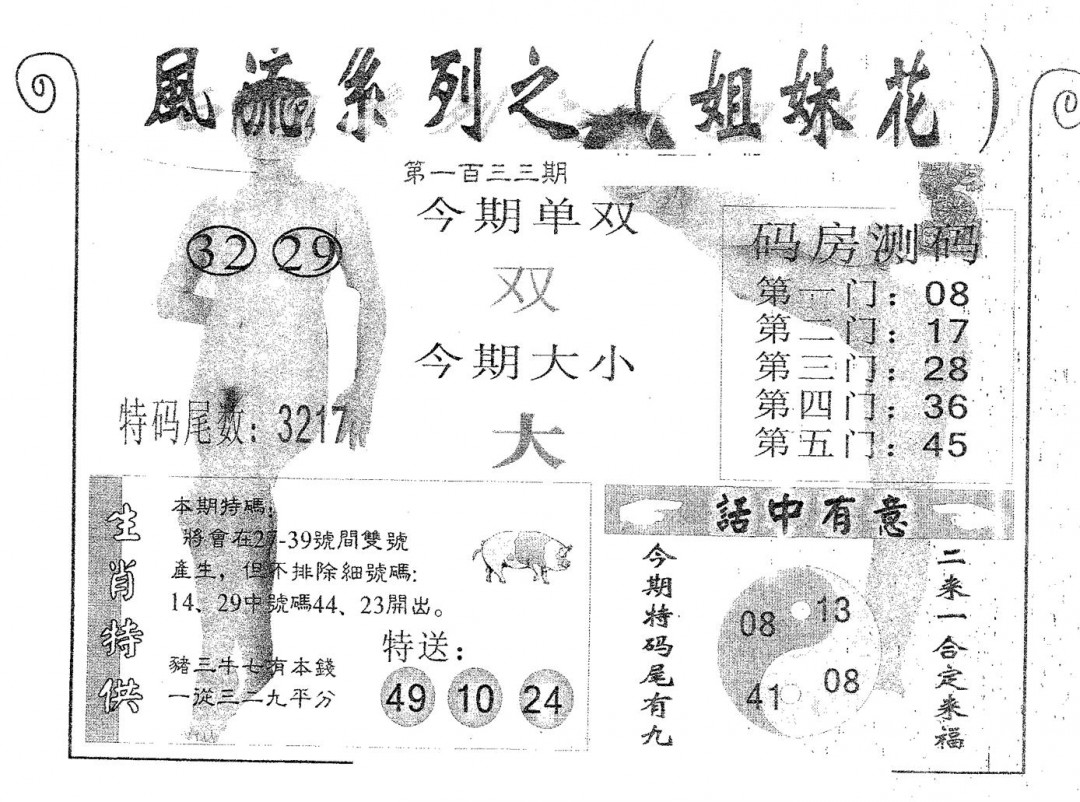 風流系列之(姐妹花)
第一百三三期
今期单双
双
今期大小
大
32 29
特码尾数：3217
码房测码
第一门：08
第二门：17
第三门：28
第四门：36
第五门：45
生肖特供
本期特碼：
將會在27-39號間雙號
產生，但不排除細號碼:
14、29中號碼44、23開出。
豬三牛七有本錢
一從三二九平分
特送：
49 10 24
話中有意
今期特码尾有九
08 13
41 08
二来一合定来福